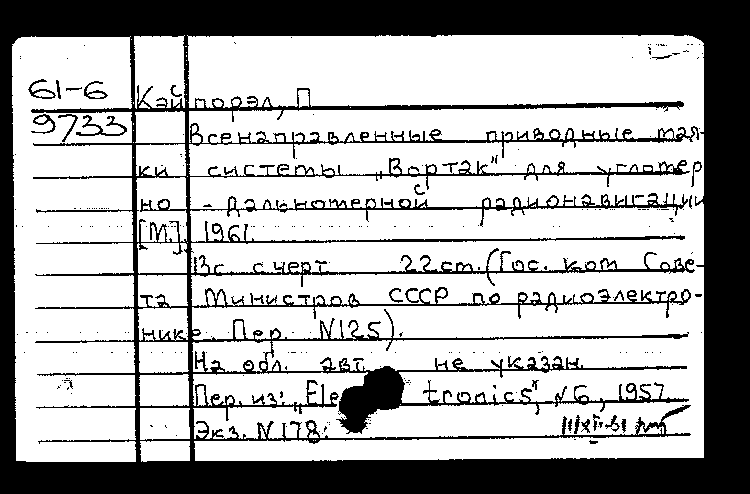 61-6 Кэйпорэл, П
9733
Всенаправленные приводные мая-
ки системы „Вортак" для угломер
но-дальномерной радионавигации
[М.], 1961.
13с. с черт. 22 см. (Гос. ком Сове-
та Министров СССР по радиоэлектро-
нике. Пер. N125).
На обл. авт. не указан.
Пер. из: „Ele tronics", N6, 1957.
Экз. N178.